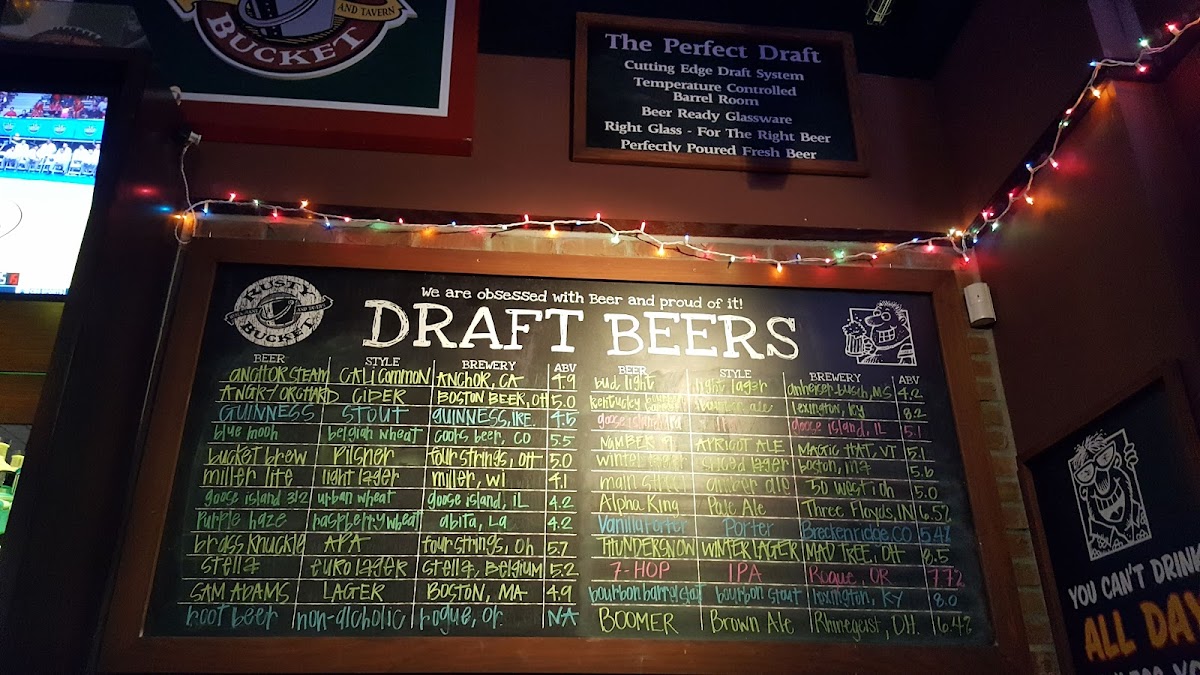 AND TAVERN
BUCKET
The Perfect Draft
Cutting Edge Draft System
Temperature Controlled
Barrel Room
Beer Ready Glassware
Right Glass - For The Right Beer
Perfectly Poured Fresh Beer
RUSTY
BUCKET
We are obsessed with Beer and proud of it!
DRAFT BEERS
BEER STYLE BREWERY ABV
ANCHOR STEAM CALI COMMON ANCHOR, CA 4.9
ANGRY ORCHARD CIDER BOSTON BEER, OH 5.0
GUINNESS STOUT GUINNESS, IRE. 4.5
blue moon belgian wheat coors beer, CO 5.5
bucket brew Pilsner four strings, OH 5.0
miller lite light lager miller, WI 4.1
goose island 312 urban wheat goose island, IL 4.2
Purple haze raspberry wheat abita, La 4.2
brass knuckle APA four strings, Oh 5.7
Stella euro lager Stella, Belgium 5.2
SAM ADAMS LAGER BOSTON, MA 4.9
root beer non-alcoholic rogue, or NA
BEER STYLE BREWERY ABV
bud light light lager anheiser-busch, MS 4.2
kentucky bourbon ale lexington, Ky 8.2
goose island ipa IPA goose island, IL 5.1
NUMBER 9 APRICOT ALE MAGIC THAT, VT 5.1
winter lager spiced lager boston, ma 5.6
main street amber ale 50 west, oh 5.0
Alpha King Pale Ale Three Floyds, IN 6.5%
Vanilla Porter Porter Breckenridge, CO 5.4%
THUNDERSNOW WINTER LAGER MAD TREE, OH 8.5
7-HOP IPA Rogue, OR 7.7%
bourbon barrel stout bourbon stout lexington, Ky 8.0
BOOMER Brown Ale Rhinegeist, OH. 6.4%
YOU CAN'T DRINK
ALL DAY